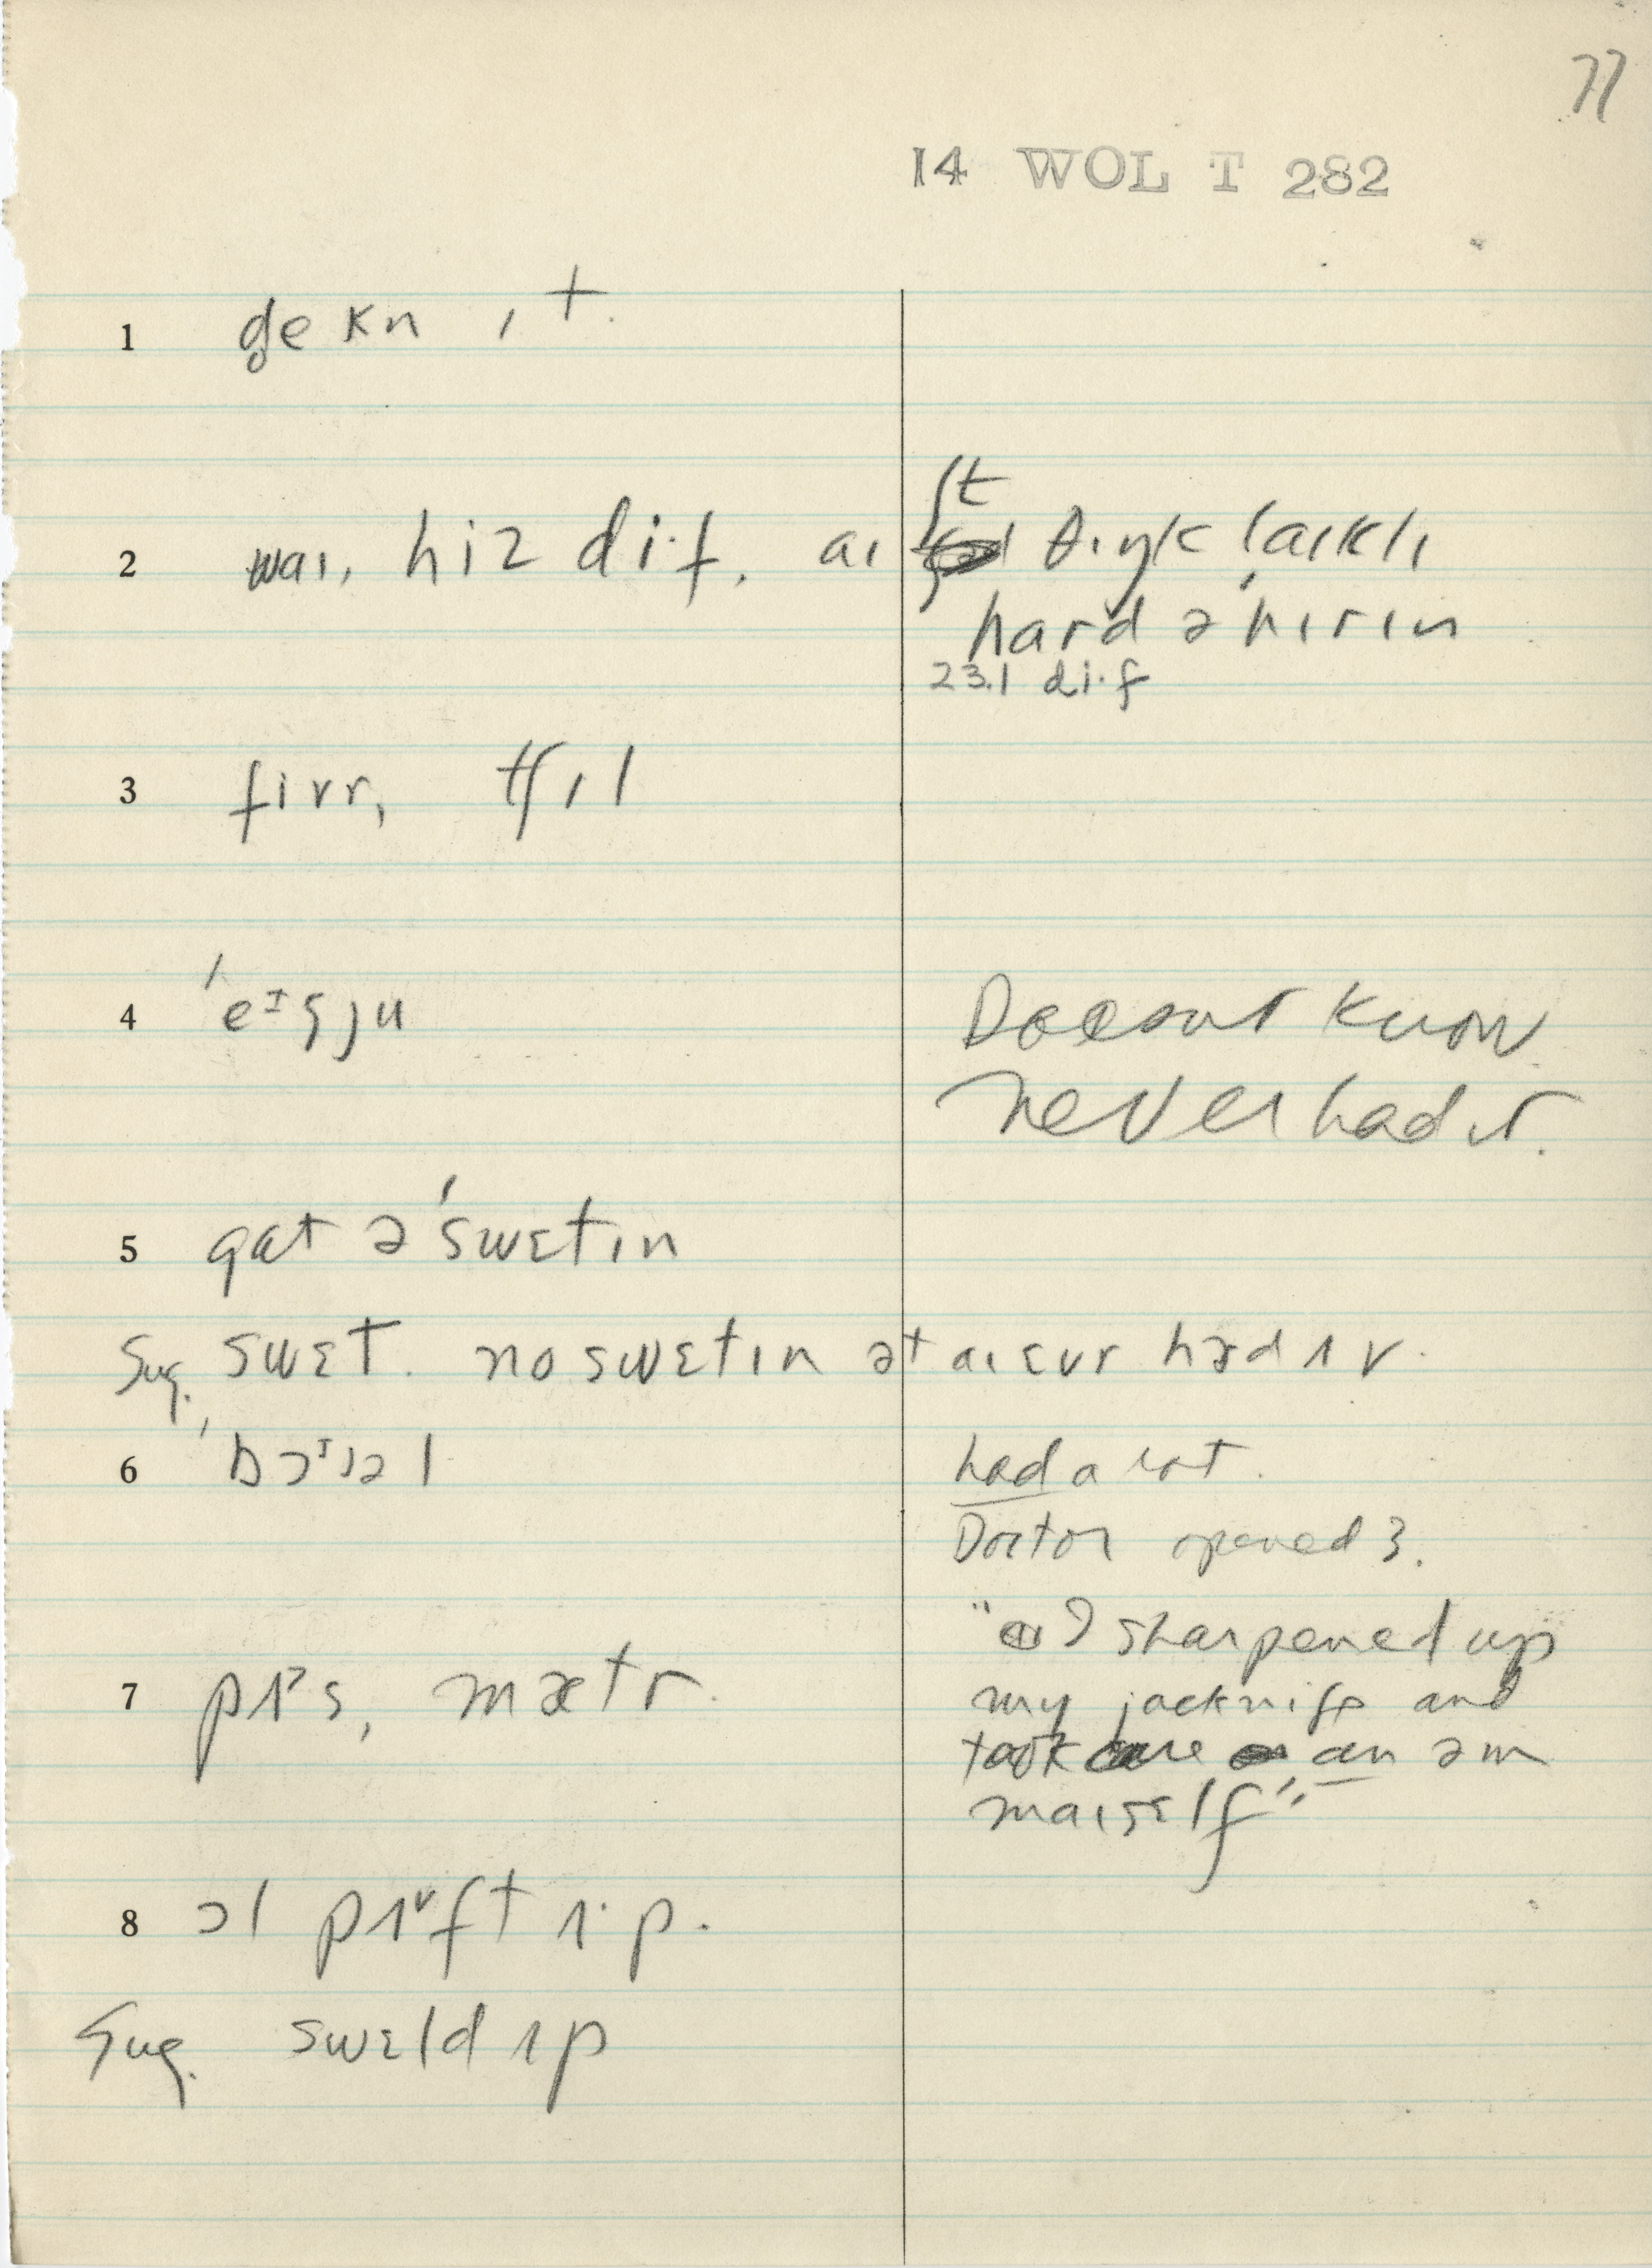 77
14 WOL T 282
1 d̥e kn ɪt.
2 waɪ, hiz di·f. aɪ ʃt θɪŋk laɪklɪ
hard ə hɪrɪn
23.1 di·f
3 fivr, tʃɪl
4 ˈeᶦgju Doesnt know
never had it.
5 gat ə ˈswɛtɪn
Sug. swɛt. no swɛtɪn ət aɪ ɛvr hæd ʌv.
6 ˈbɔᶦəl had a lot.
Doctor opened 3.
"I sharpened up
7 pʌˀs, mætr. my jacknife and
took care an əm
maɪsɛlf"
8 ɔl pʌᵛft ʌ·p.
Sug. swɛld ʌp